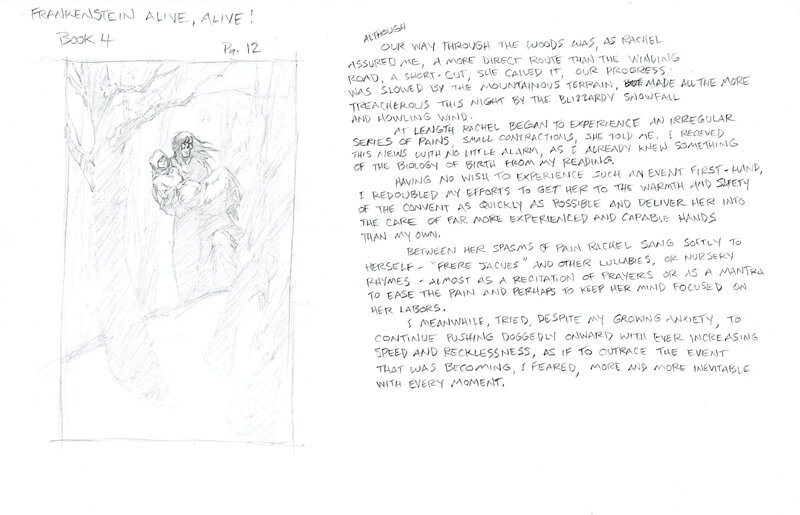 FRANKENSTEIN ALIVE, ALIVE!
BOOK 4
PG. 12
ALTHOUGH
OUR WAY THROUGH THE WOODS WAS, AS RACHEL
ASSURED ME, A MORE DIRECT ROUTE THAN THE WINDING
ROAD, A SHORT-CUT, SHE CALLED IT, OUR PROGRESS
WAS SLOWED BY THE MOUNTAINOUS TERRAIN, MADE ALL THE MORE
TREACHEROUS THIS NIGHT BY THE BLIZZARDY SNOWFALL
AND HOWLING WIND.
AT LENGTH RACHEL BEGAN TO EXPERIENCE AN IRREGULAR
SERIES OF PAINS, SMALL CONTRACTIONS, SHE TOLD ME. I RECEVED
THIS NEWS WITH NO LITTLE ALARM, AS I ALREADY KNEW SOMETHING
OF THE BIOLOGY OF BIRTH FROM MY READING.
HAVING NO WISH TO EXPERIENCE SUCH AN EVENT FIRST-HAND,
I REDOUBLED MY EFFORTS TO GET HER TO THE WARMTH AND SAFETY
OF THE CONVENT AS QUICKLY AS POSSIBLE AND DELIVER HER INTO
THE CARE OF FAR MORE EXPERIENCED AND CAPABLE HANDS
THAN MY OWN.
BETWEEN HER SPASMS OF PAIN RACHEL SANG SOFTLY TO
HERSELF - "FRERE JACUES" AND OTHER LULLABIES, OR NURSERY
RHYMES - ALMOST AS A RECITATION OF PRAYERS OR AS A MANTRA
TO EASE THE PAIN AND PERHAPS TO KEEP HER MIND FOCUSED ON
HER LABORS.
I MEANWHILE, TRIED, DESPITE MY GROWING ANXIETY, TO
CONTINUE PUSHING DOGGEDLY ONWARD WITH EVER INCREASING
SPEED AND RECKLESSNESS, AS IF TO OUTRACE THE EVENT
THAT WAS BECOMING, I FEARED, MORE AND MORE INEVITABLE
WITH EVERY MOMENT.